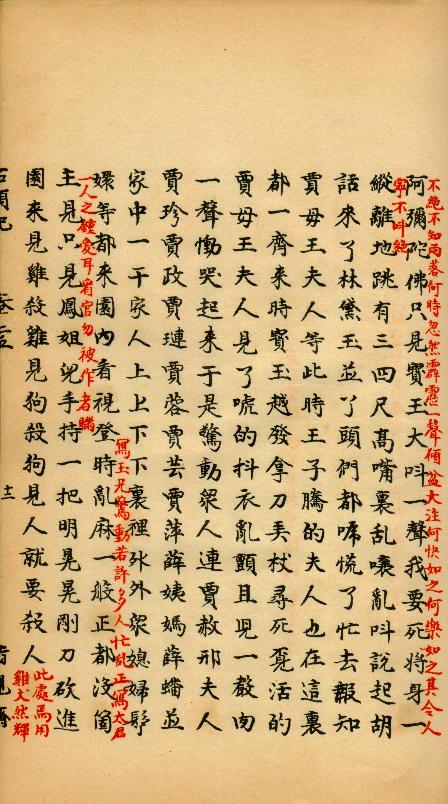 不絕不知雨若何時忽然霹靂一聲傾盆大注何快如之何樂如之其令人
寧不叫絕
阿彌陀佛只見寳玉大叫一聲我要死將身一
縱離地跳有三四尺高嘴裏乱嚷亂叫說起胡
話來了林黛玉並丫頭們都唬慌了忙去報知
賈母王夫人等此時王子騰的夫人也在這裏
都一齊来時寳玉越發拿刀弄杖尋死覓活的
賈母王夫人見了唬的抖衣亂顫且児一聲肉
一聲慟哭起来于是驚動衆人連賈赦邢夫人
賈珍賈政賈璉賈蓉賈芸賈萍薛姨媽薛蟠並
家中一干家人上上下下裏裡外外衆媳婦丫
寫玉兄驚動若許多人忙乱正寫太君
嬛等都来園内看視登時亂麻一般正都沒個
一人之鍾愛耳看官勿被作者瞞
主見只見鳳姐児手持一把明晃晃剛刀砍進
園来見雞殺雞見狗殺狗見人就要殺人
此處焉用
雞犬然輝
石頭記
十二